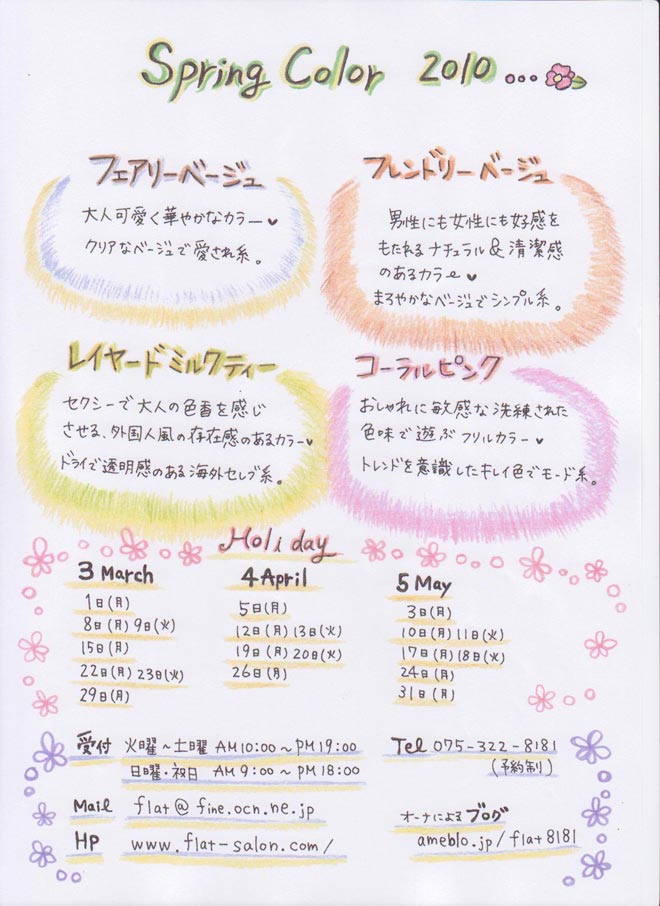 Spring Color 2010...
フェアリーベージュ
大人可愛く華やかなカラー♥
クリアなベージュで愛され系。
フレンドリーベージュ
男性にも女性にも好感を
もたれるナチュラル&清潔感
のあるカラー♥
まろやかなベージュでシンプル系。
レイヤードミルクティー
セクシーで大人の色香を感じ
させる、外国人風の存在感のあるカラー♥
ドライで透明感のある海外セレブ系。
コーラルピンク
おしゃれに敏感な洗練された
色味で遊ぶフリルカラー♥
トレンドを意識したキレイ色でモード系。
Holiday
3 March
1日(月)
8日(月) 9日(火)
15日(月)
22日(月) 23日(火)
29日(月)
4 April
5日(月)
12日(月) 13日(火)
19日(月) 20日(火)
26日(月)
5 May
3日(月)
10日(月) 11日(火)
17日(月) 18日(火)
24日(月)
31日(月)
受付 火曜~土曜 AM10:00~PM19:00
日曜・祝日 AM9:00~PM18:00
Mail flat@fine.ocn.ne.jp
HP www.flat-salon.com/
Tel 075-322-8181
(予約制)
オーナによるブログ
ameblo.jp/flat8181